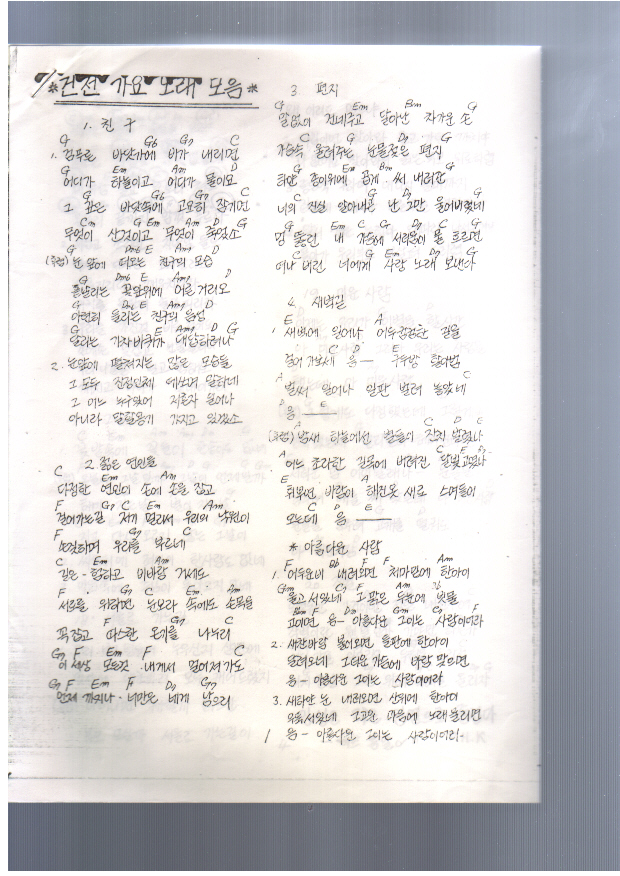 *건전 가요 노래 모음*
1. 친구
G G6 G7 C
1. 검푸른 바닷가에 비가 내리면
G Em Am7 D
어디가 하늘이고 어디가 물이요
G G6 G7 C
그 깊은 바닷속에 고요히 잠기면
Cm G Em Am7 D G
무엇이 산것이고 무엇이 죽었소
G Dm6 E Am7 D
(후렴) 눈 앞에 떠오는 친구의 모습
G Dm6 E Am7 D
흩날리는 꽃잎위에 어른거리오
G Dm6 E Am7 D
아련히 들리는 친구의 음성
G E Am7 D G
달리는 기차바퀴가 대답하려나
2. 눈앞에 펼쳐지는 많은 모습들
그 모두 진정인데
그 어느 누구있어
아니라 말할용기 가지고 있겠소
2. 젊은 연인들
C Em Am
다정한 연인이 손에 손을 잡고
F G7 C Em Am
걸어가는길 저기 멀리서 우리의 낙원이
F G7 C
손짓하며 우리를 부르네
C Em Am
길은 험하고 비바람 거세도
F G7 C Em Am
서로를 위하며 눈보라 속에도 손목을
F G7 C
꼭잡고 따스한 온기를 나누리
G7 F Em F C
이 세상 모든것 내게서 멀어져 가도
G7 F Em F D7 G7
언제 까지나 너만은 내게 남으리
3 편지
G Em Bm G
말없이 건네주고 달아난 차가운 손
C G D7 G
가슴속 울려주는 눈물젖은 편지
G Em Bm G
하얀 종이위에 곱게 써 내려간
C G D7 G
너의 진실 알아내곤 난 그만 울어버렸네
G Em C G
멍 뚫린 내 가슴에 서러움이 물 흐르면
C G Em D7 G
떠나 버린 너에게 사랑 노래 보낸다
4. 새벽길
E A
1. 새벽에 일어나 어두컴컴한 길을
C D E
걸어 가보세 음― 구두방 할아범
A C
벌써 일어나 일판 벌려 놓았네
D E
음
A C D E
(후렴) 밤새 하늘에선 별들이 잔치 벌렸나
A C E
어느 초라한 길목에 버려진 달빛고였나
E A
희뿌연 바람이 해진옷 새로 스며들어
C D E
오는데 음
* 아름다운 사람
F Bb F Am
1. 어두운비 내려오면 처마밑에 한아이
울고 서있네 그 맑은 두눈에 빗물
고이면 음― 아름다운 그이는 사람이어라
2. 새찬바람 불어오면 들판에 한아이
달려오네 그더운 가슴에 바람 맞으면
음― 아름다운 그이는 사람이어라
3. 새하얀 눈 내려오면 산위에 한아이
우뚝서있네 그고운 마음에 노래 울리면
음― 아름다운 그이는 사람이어라